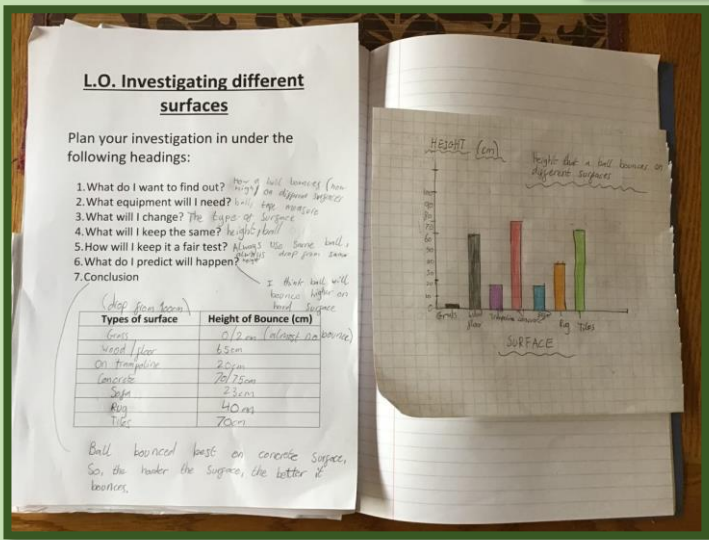 L.O. Investigating different
surfaces
Plan your investigation in under the
following headings:
1. What do I want to find out? How a ball bounces (how
high) on different surfaces
2. What equipment will I need? ball, tape measure
3. What will I change? The type of surface
4. What will I keep the same? height, ball
5. How will I keep it a fair test? Always use same ball,
always drop from same
height
6. What do I predict will happen?
7. Conclusion
I think ball will
bounce higher on
hard surface
(drop from 100cm)
Types of surface Height of Bounce (cm)
Grass 0/2 cm (almost no bounce)
Wood / floor 65cm
On trampoline 20cm
Concrete 70/75cm
Sofa 23cm
Rug 40cm
Tiles 70cm
Ball bounced best on concrete surface,
So, the harder the surface, the better it
bounces.
HEIGHT (cm)
Height that a ball bounces on
different surfaces
100
90
80
70
60
50
40
30
20
10
0
Grass Wood floor Trampoline Concrete Rug Tiles
SURFACE